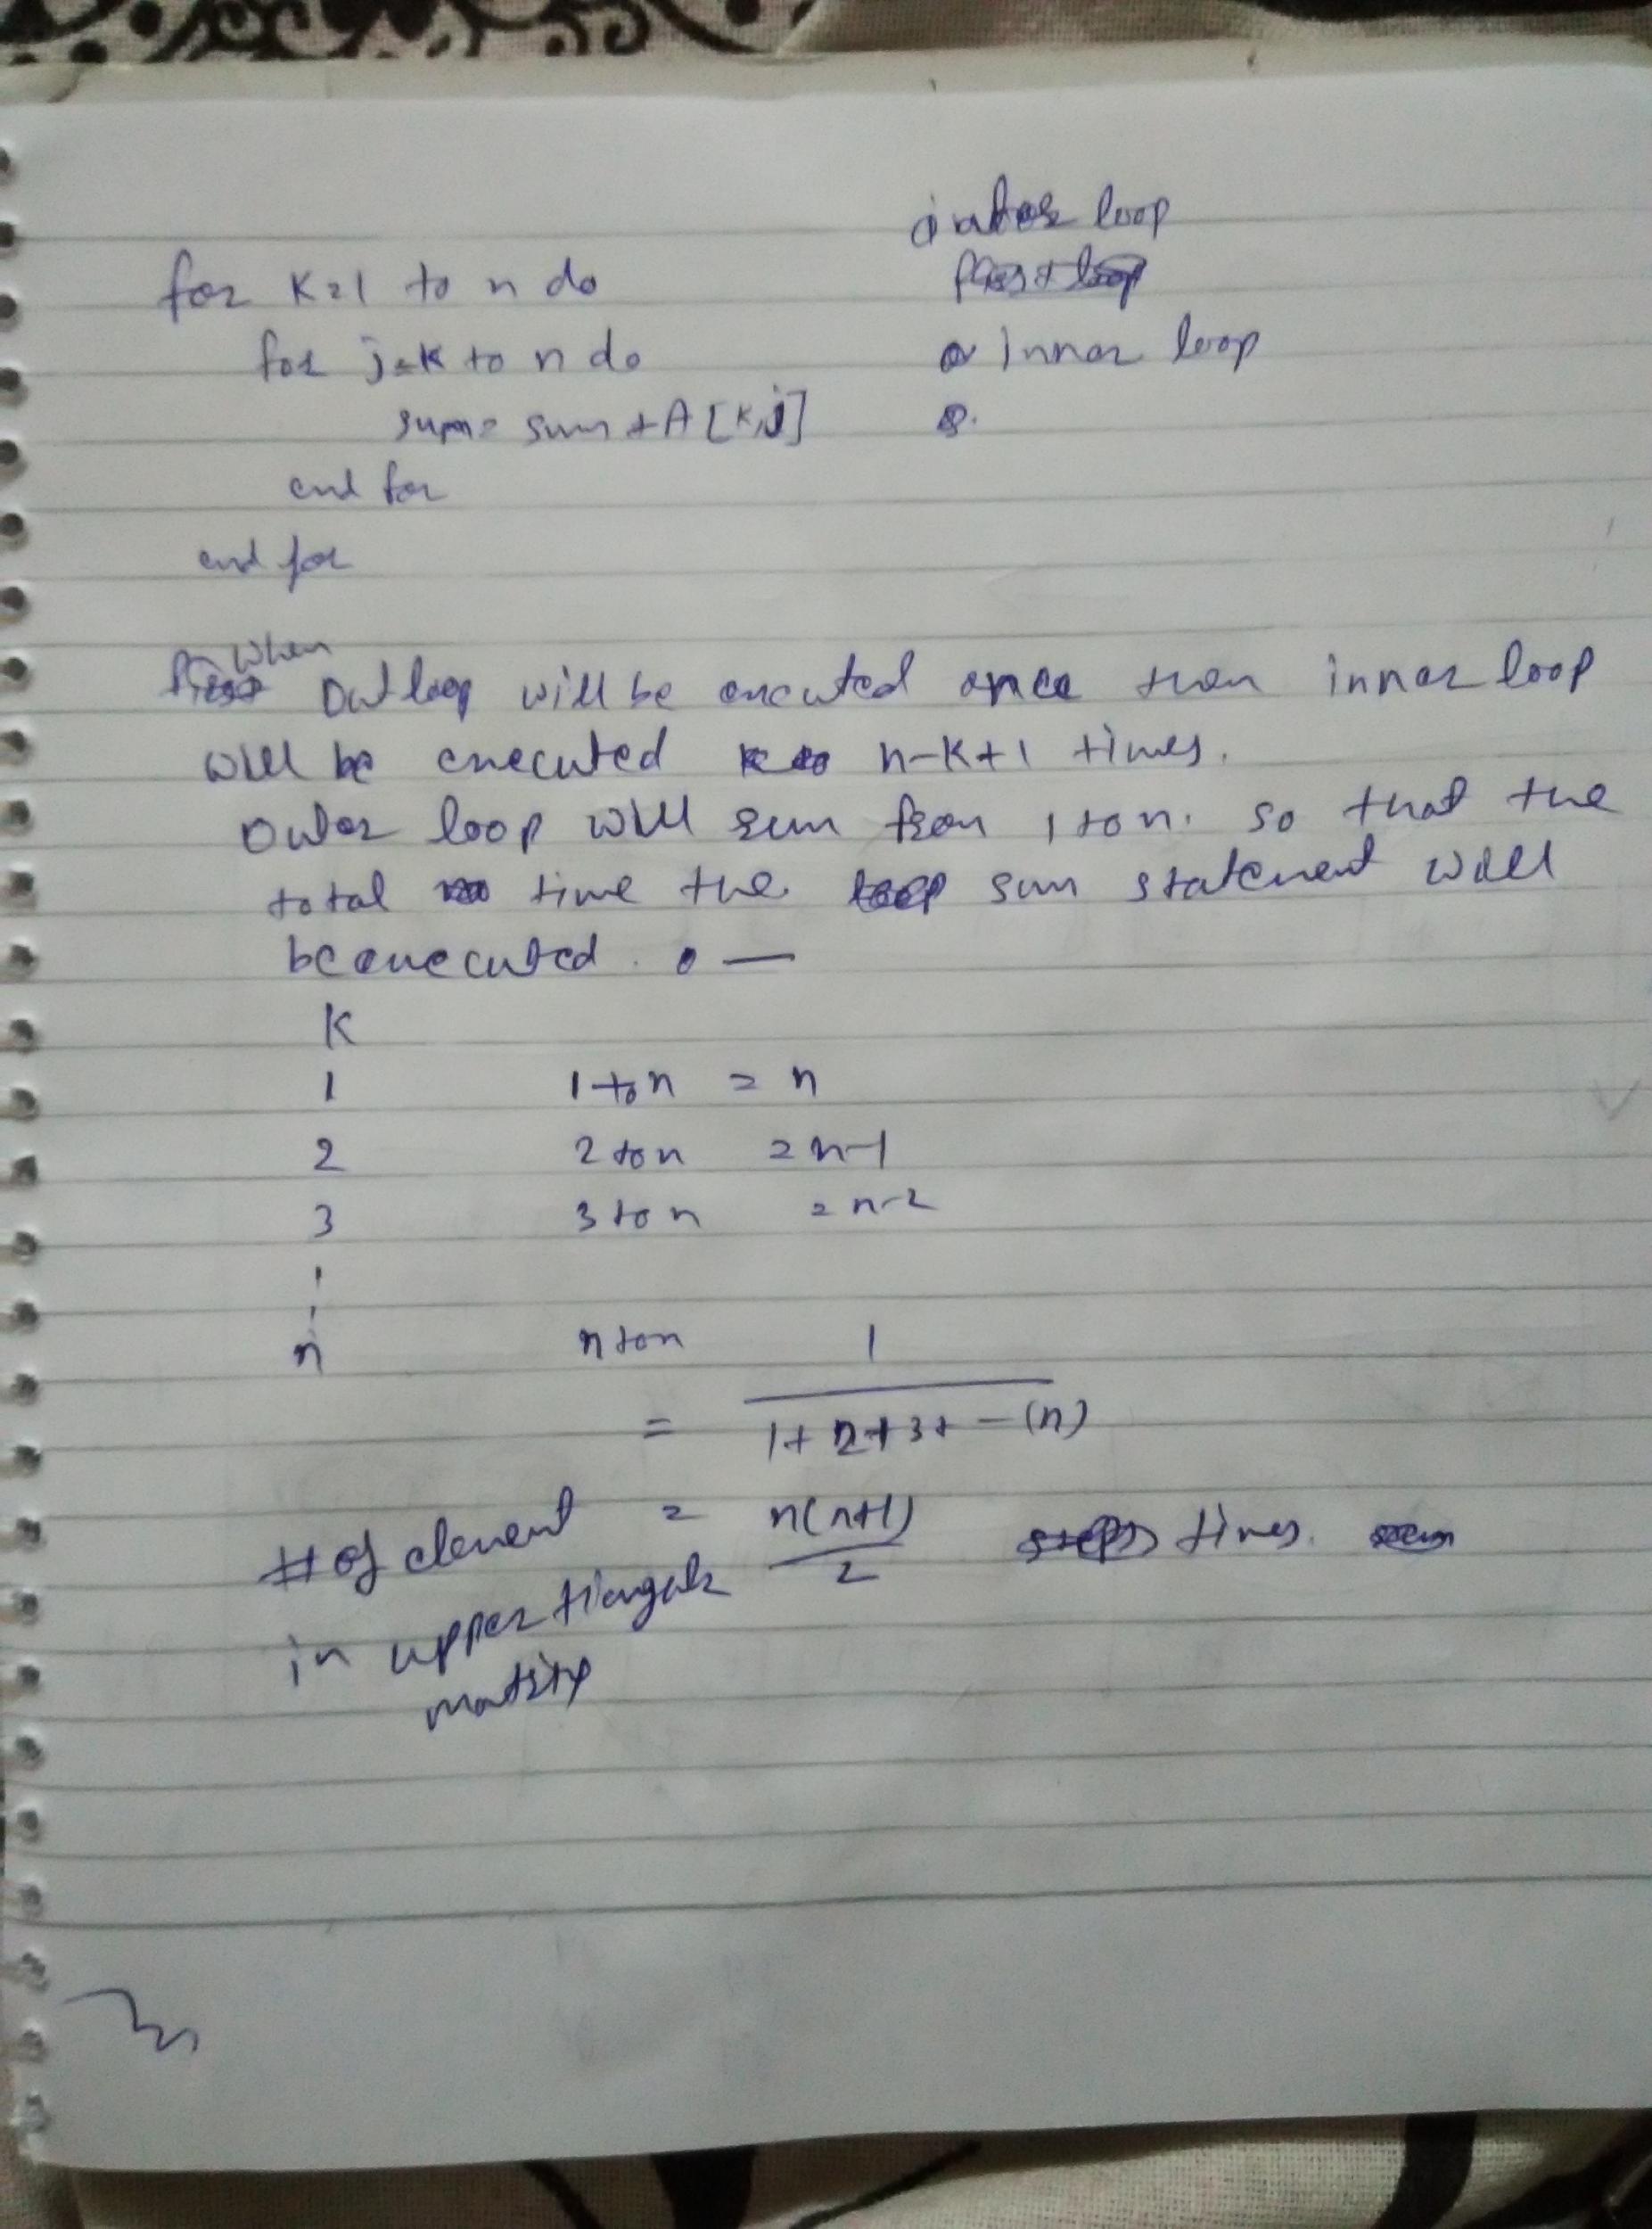 outer loop
for K=1 to n do
for j=K to n do
inner loop
sum = sum + A[K,j]
end for
end for
when
Out loop will be executed once then inner loop
will be executed n-K+1 times.
Outer loop will run from 1 to n. so that the
total time the sum statement will
be executed. —
K
1 1 to n = n
2 2 to n = n-1
3 3 to n = n-2
n n to n 1
= 1+2+3+ - (n)
# of element = n(n+1)/2 times.
in upper triangular
matrix